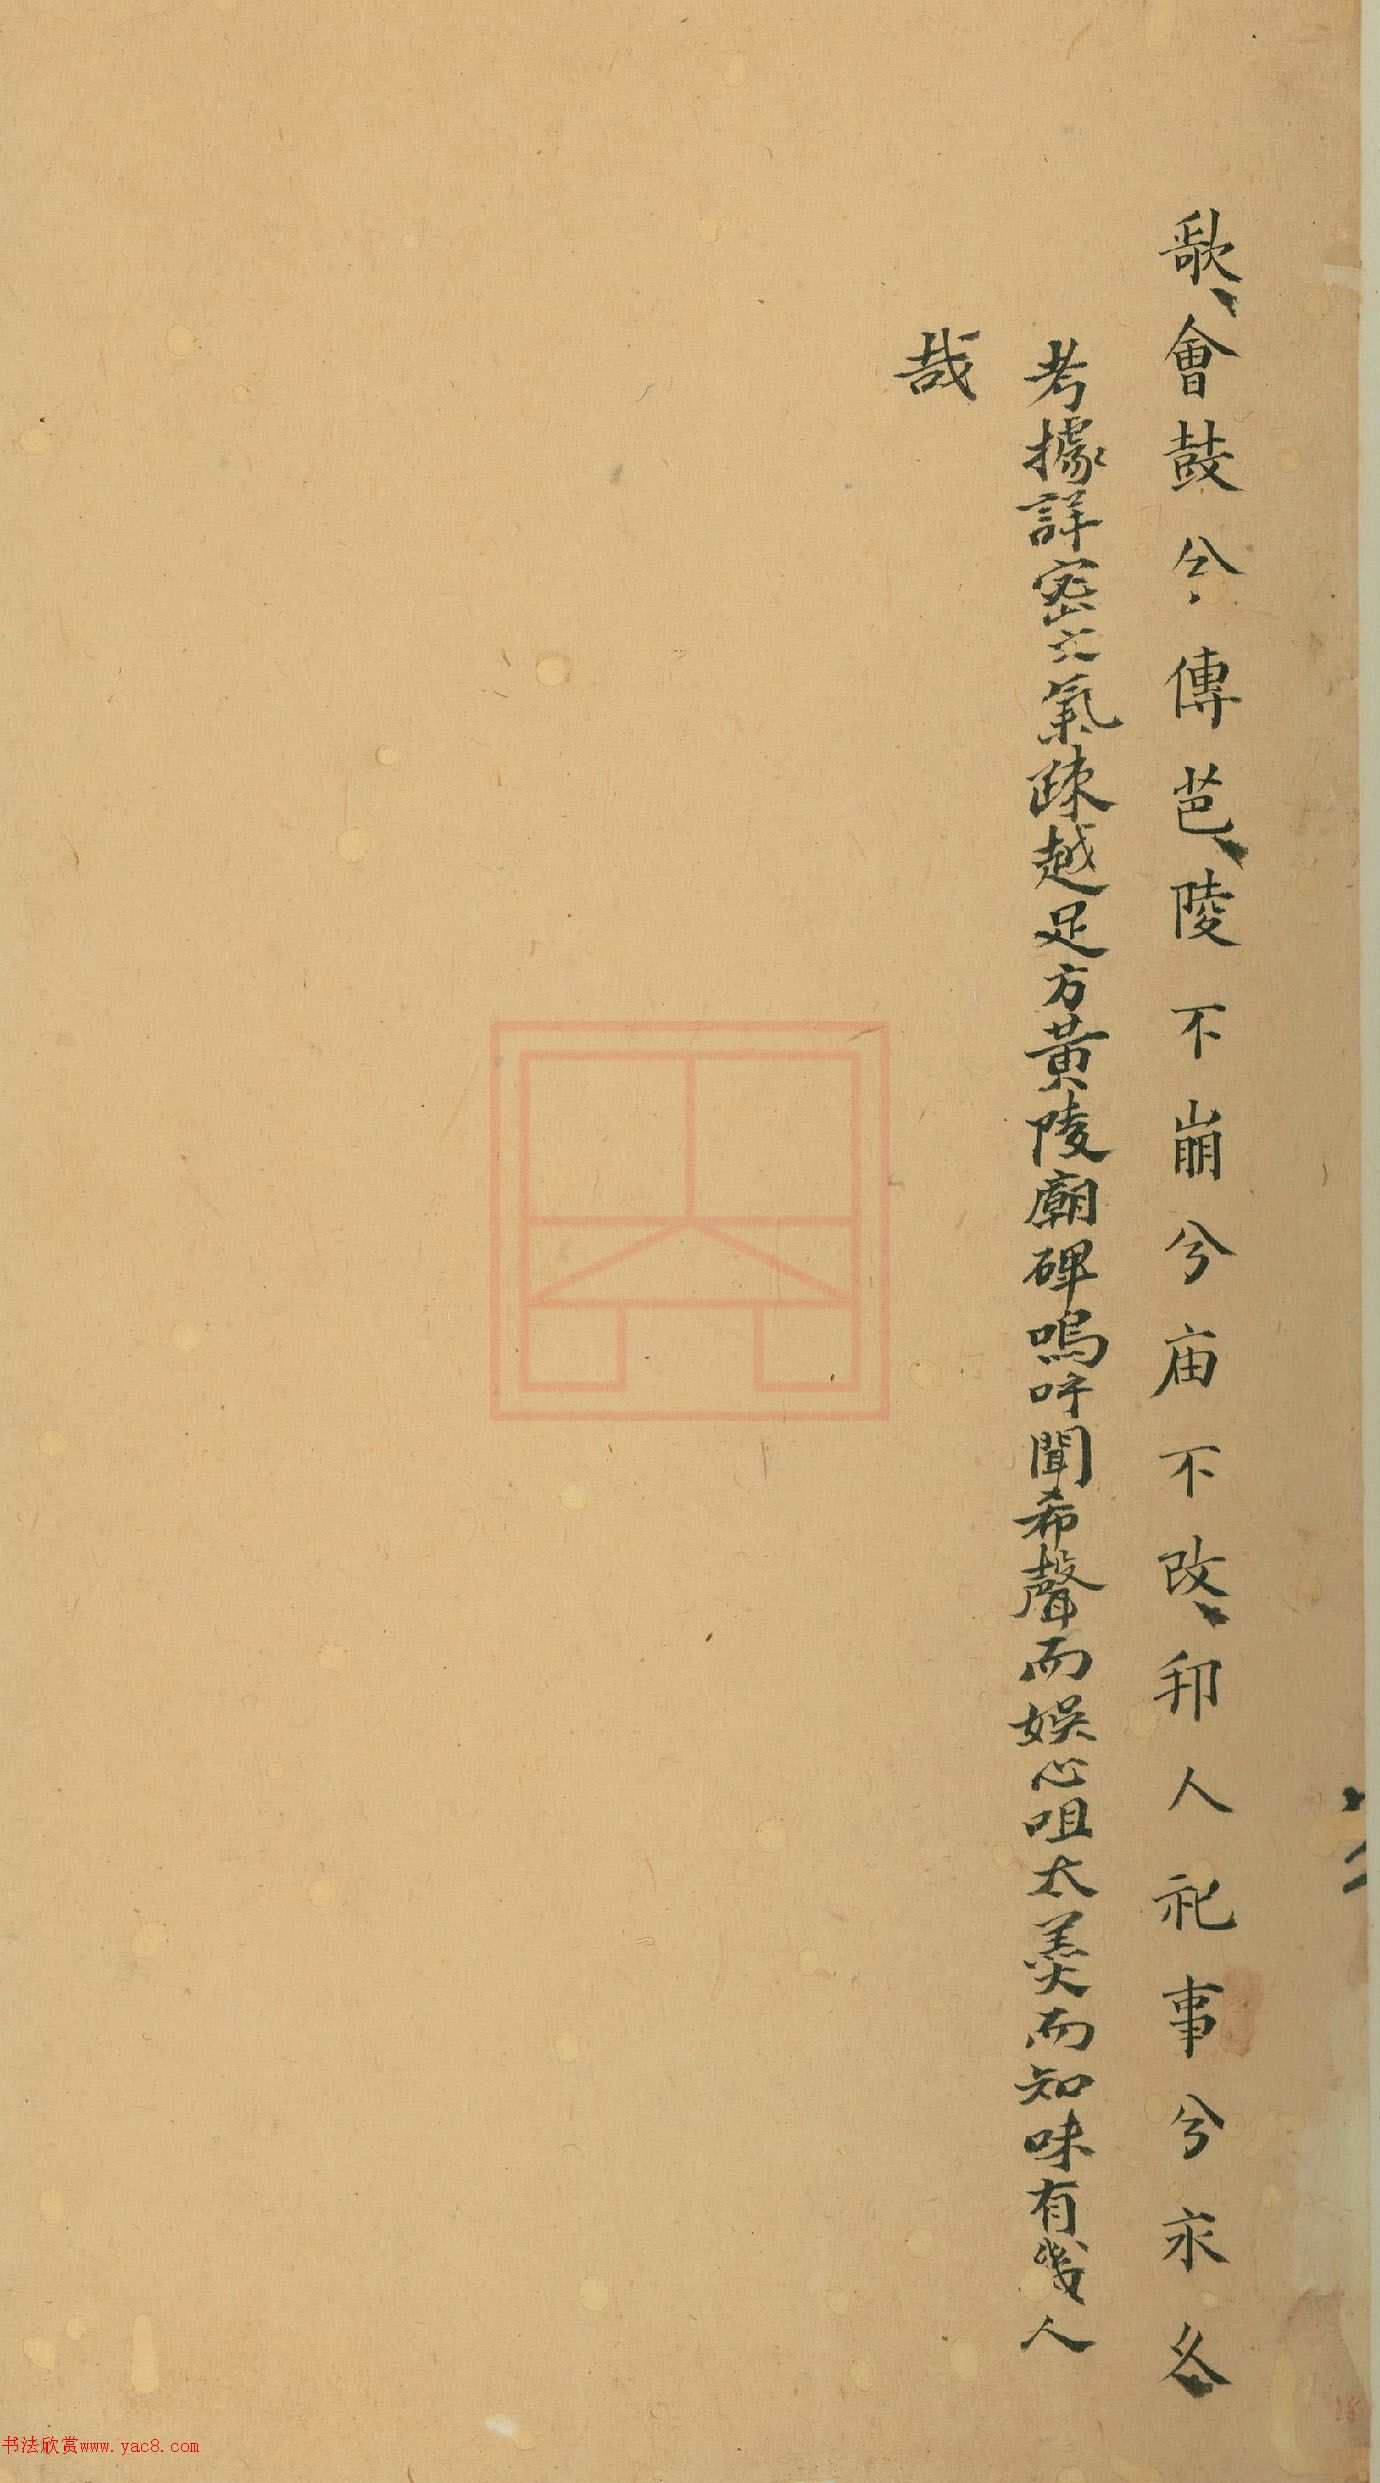 歌會鼓兮傳芭陵不崩兮庙不改邦人祀事兮永久
考據詳密文氣疎越足方黃陵廟碑嗚呼聞希聲而娛心咀太羹而知味有幾人
哉
书法欣赏www.yac8.com